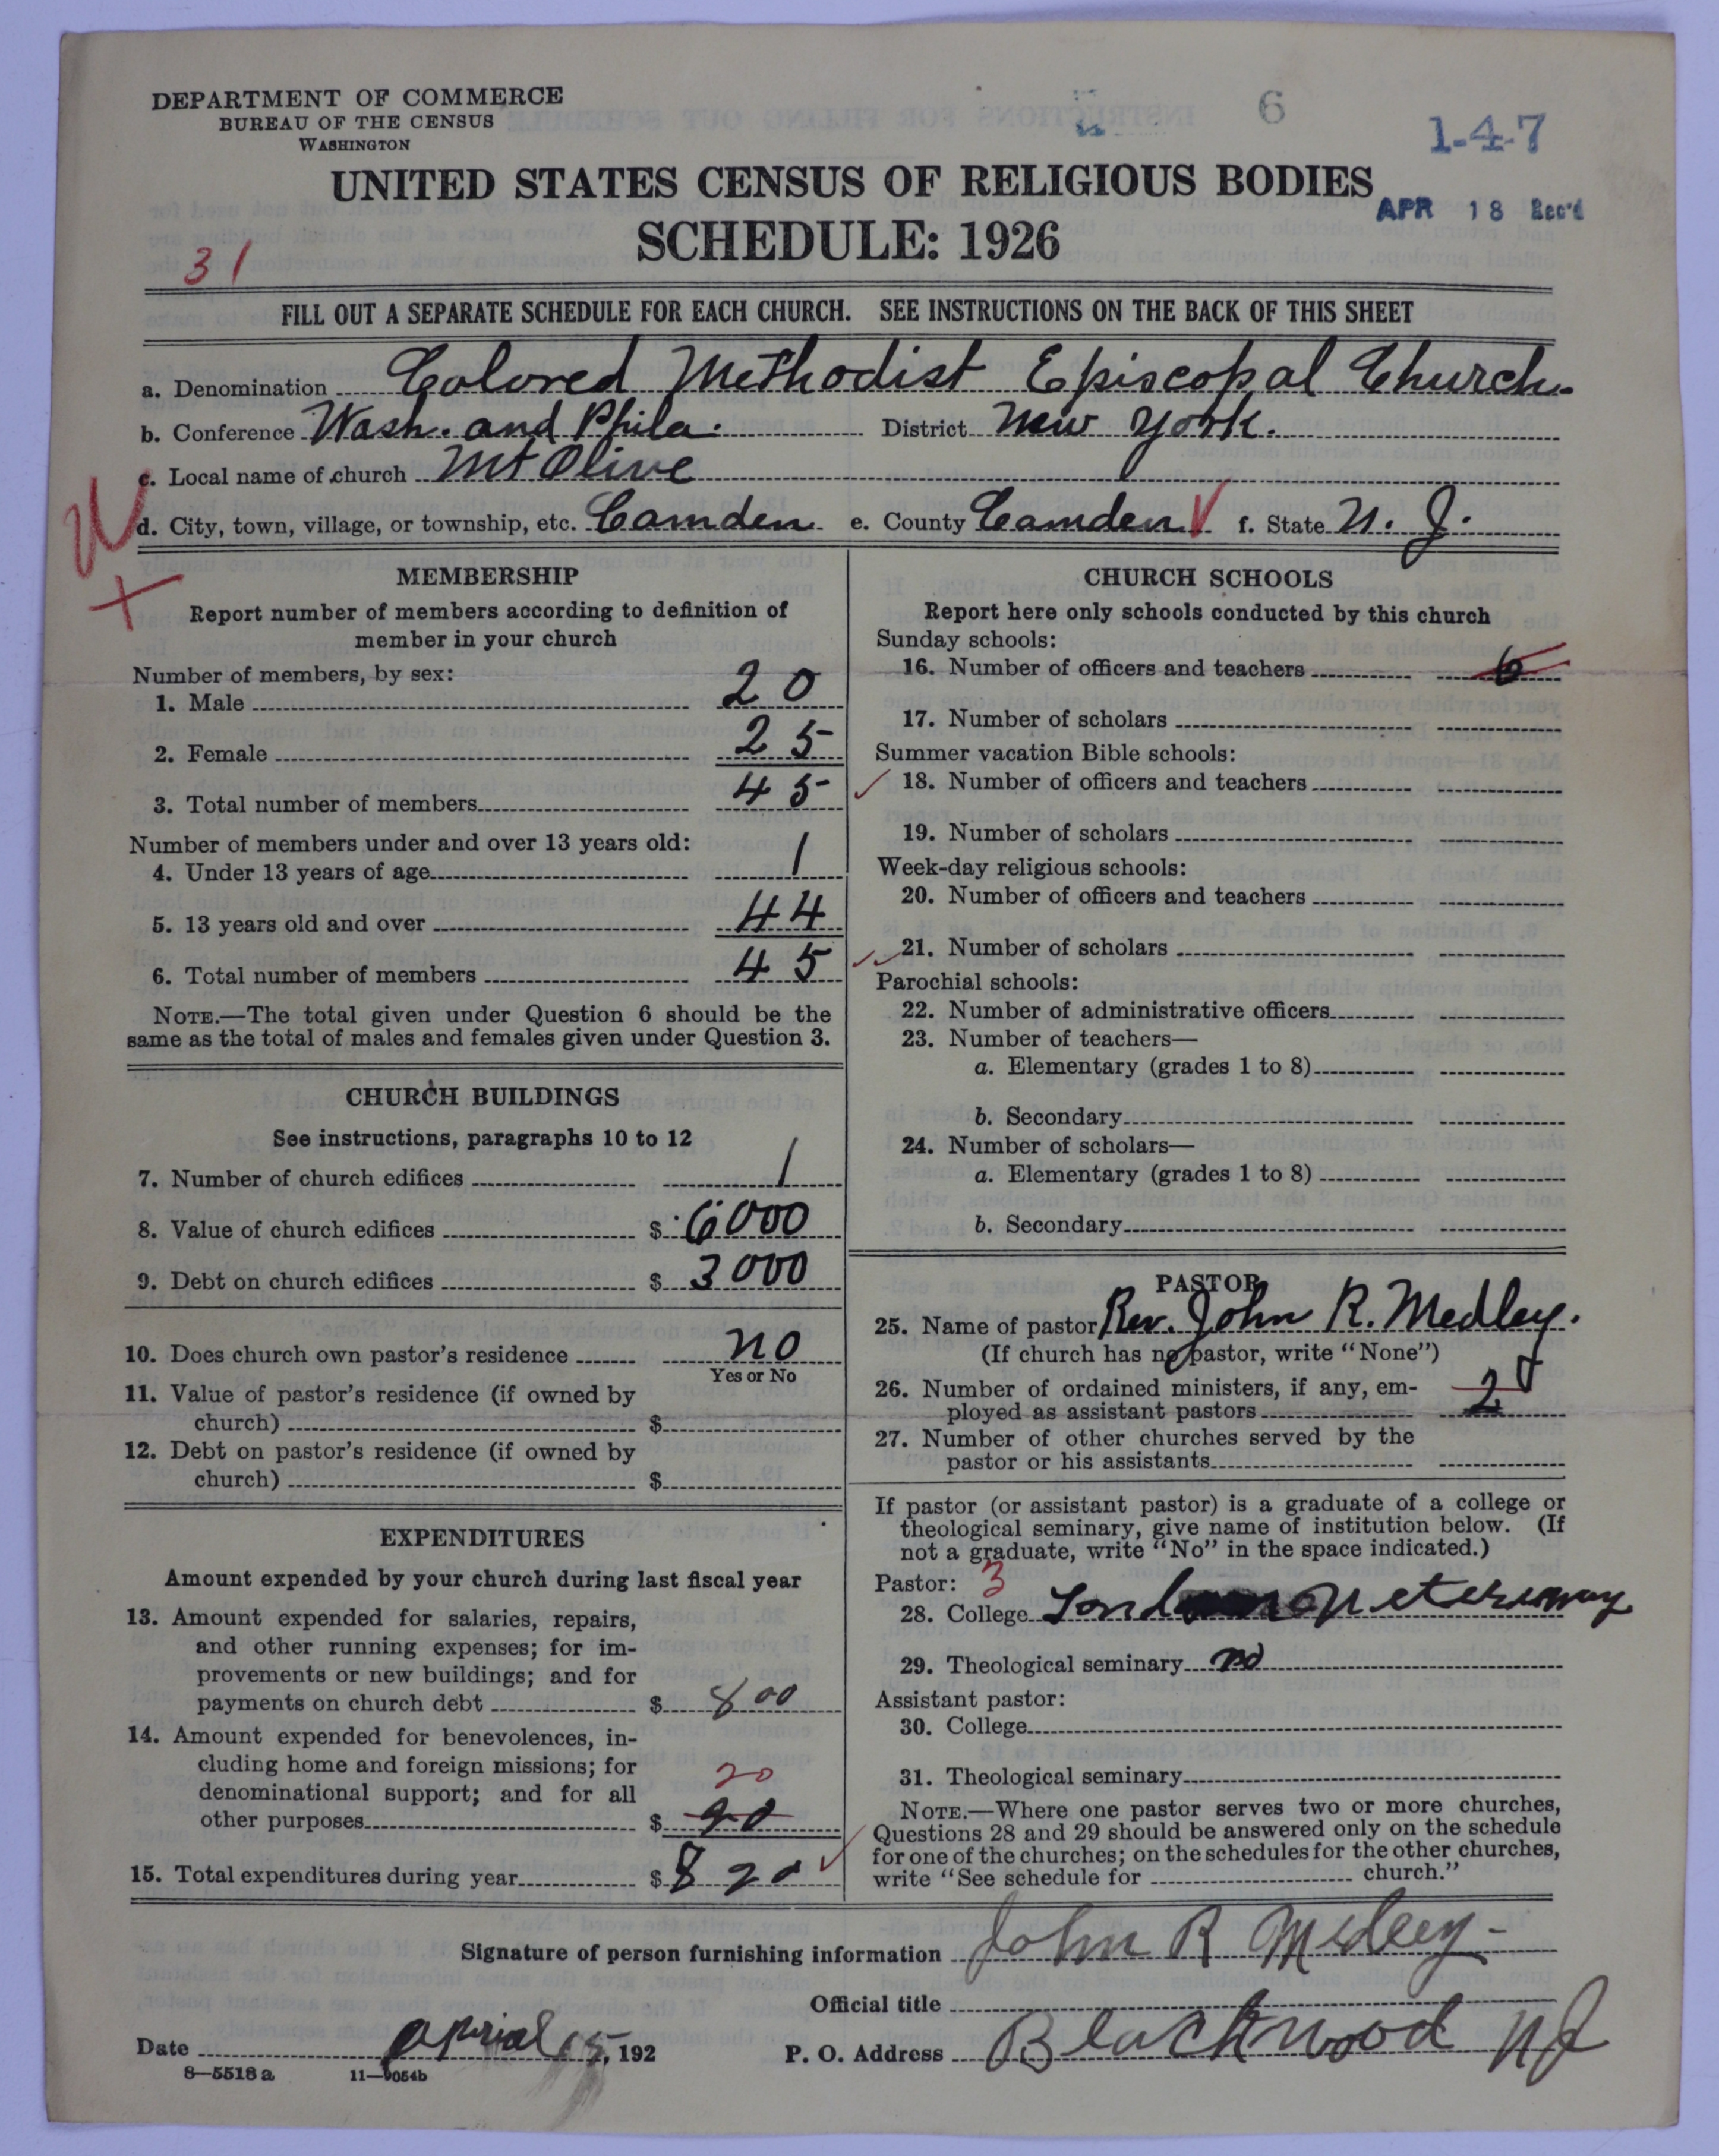 DEPARTMENT OF COMMERCE
BUREAU OF THE CENSUS
WASHINGTON
6
1-4-7
UNITED STATES CENSUS OF RELIGIOUS BODIES
APR 18 Rec'd
SCHEDULE: 1926
31
FILL OUT A SEPARATE SCHEDULE FOR EACH CHURCH. SEE INSTRUCTIONS ON THE BACK OF THIS SHEET
a. Denomination Colored Methodist Episcopal Church.
b. Conference Wash. and Phila. District New York.
c. Local name of church Mt Olive
d. City, town, village, or township, etc. Camden e. County Camden f. State N. J.
MEMBERSHIP
Report number of members according to definition of
member in your church
Number of members, by sex:
1. Male 20
2. Female 25
3. Total number of members 45
Number of members under and over 13 years old:
4. Under 13 years of age 1
5. 13 years old and over 44
6. Total number of members 45
NOTE.—The total given under Question 6 should be the
same as the total of males and females given under Question 3.
CHURCH BUILDINGS
See instructions, paragraphs 10 to 12
7. Number of church edifices 1
8. Value of church edifices $ 6000
9. Debt on church edifices $ 3000
10. Does church own pastor's residence no
Yes or No
11. Value of pastor's residence (if owned by
church) $
12. Debt on pastor's residence (if owned by
church) $
EXPENDITURES
Amount expended by your church during last fiscal year
13. Amount expended for salaries, repairs,
and other running expenses; for im-
provements or new buildings; and for
payments on church debt $ 800
14. Amount expended for benevolences, in-
cluding home and foreign missions; for
denominational support; and for all
20
other purposes $
15. Total expenditures during year $ 820
CHURCH SCHOOLS
Report here only schools conducted by this church
Sunday schools:
16. Number of officers and teachers 6
17. Number of scholars
Summer vacation Bible schools:
18. Number of officers and teachers
19. Number of scholars
Week-day religious schools:
20. Number of officers and teachers
21. Number of scholars
Parochial schools:
22. Number of administrative officers
23. Number of teachers—
a. Elementary (grades 1 to 8)
b. Secondary
24. Number of scholars—
a. Elementary (grades 1 to 8)
b. Secondary
PASTOR
25. Name of pastor Rev. John R. Medley.
(If church has no pastor, write "None")
26. Number of ordained ministers, if any, em-
ployed as assistant pastors 2
27. Number of other churches served by the
pastor or his assistants
If pastor (or assistant pastor) is a graduate of a college or
theological seminary, give name of institution below. (If
not a graduate, write "No" in the space indicated.)
Pastor: 3
28. College
29. Theological seminary no
Assistant pastor:
30. College
31. Theological seminary
NOTE.—Where one pastor serves two or more churches,
Questions 28 and 29 should be answered only on the schedule
for one of the churches; on the schedules for the other churches,
write "See schedule for church."
Signature of person furnishing information John R Medley
Official title
Date aperial 15, 192
P. O. Address Blackwood NJ
8—5518 a 11—9054b